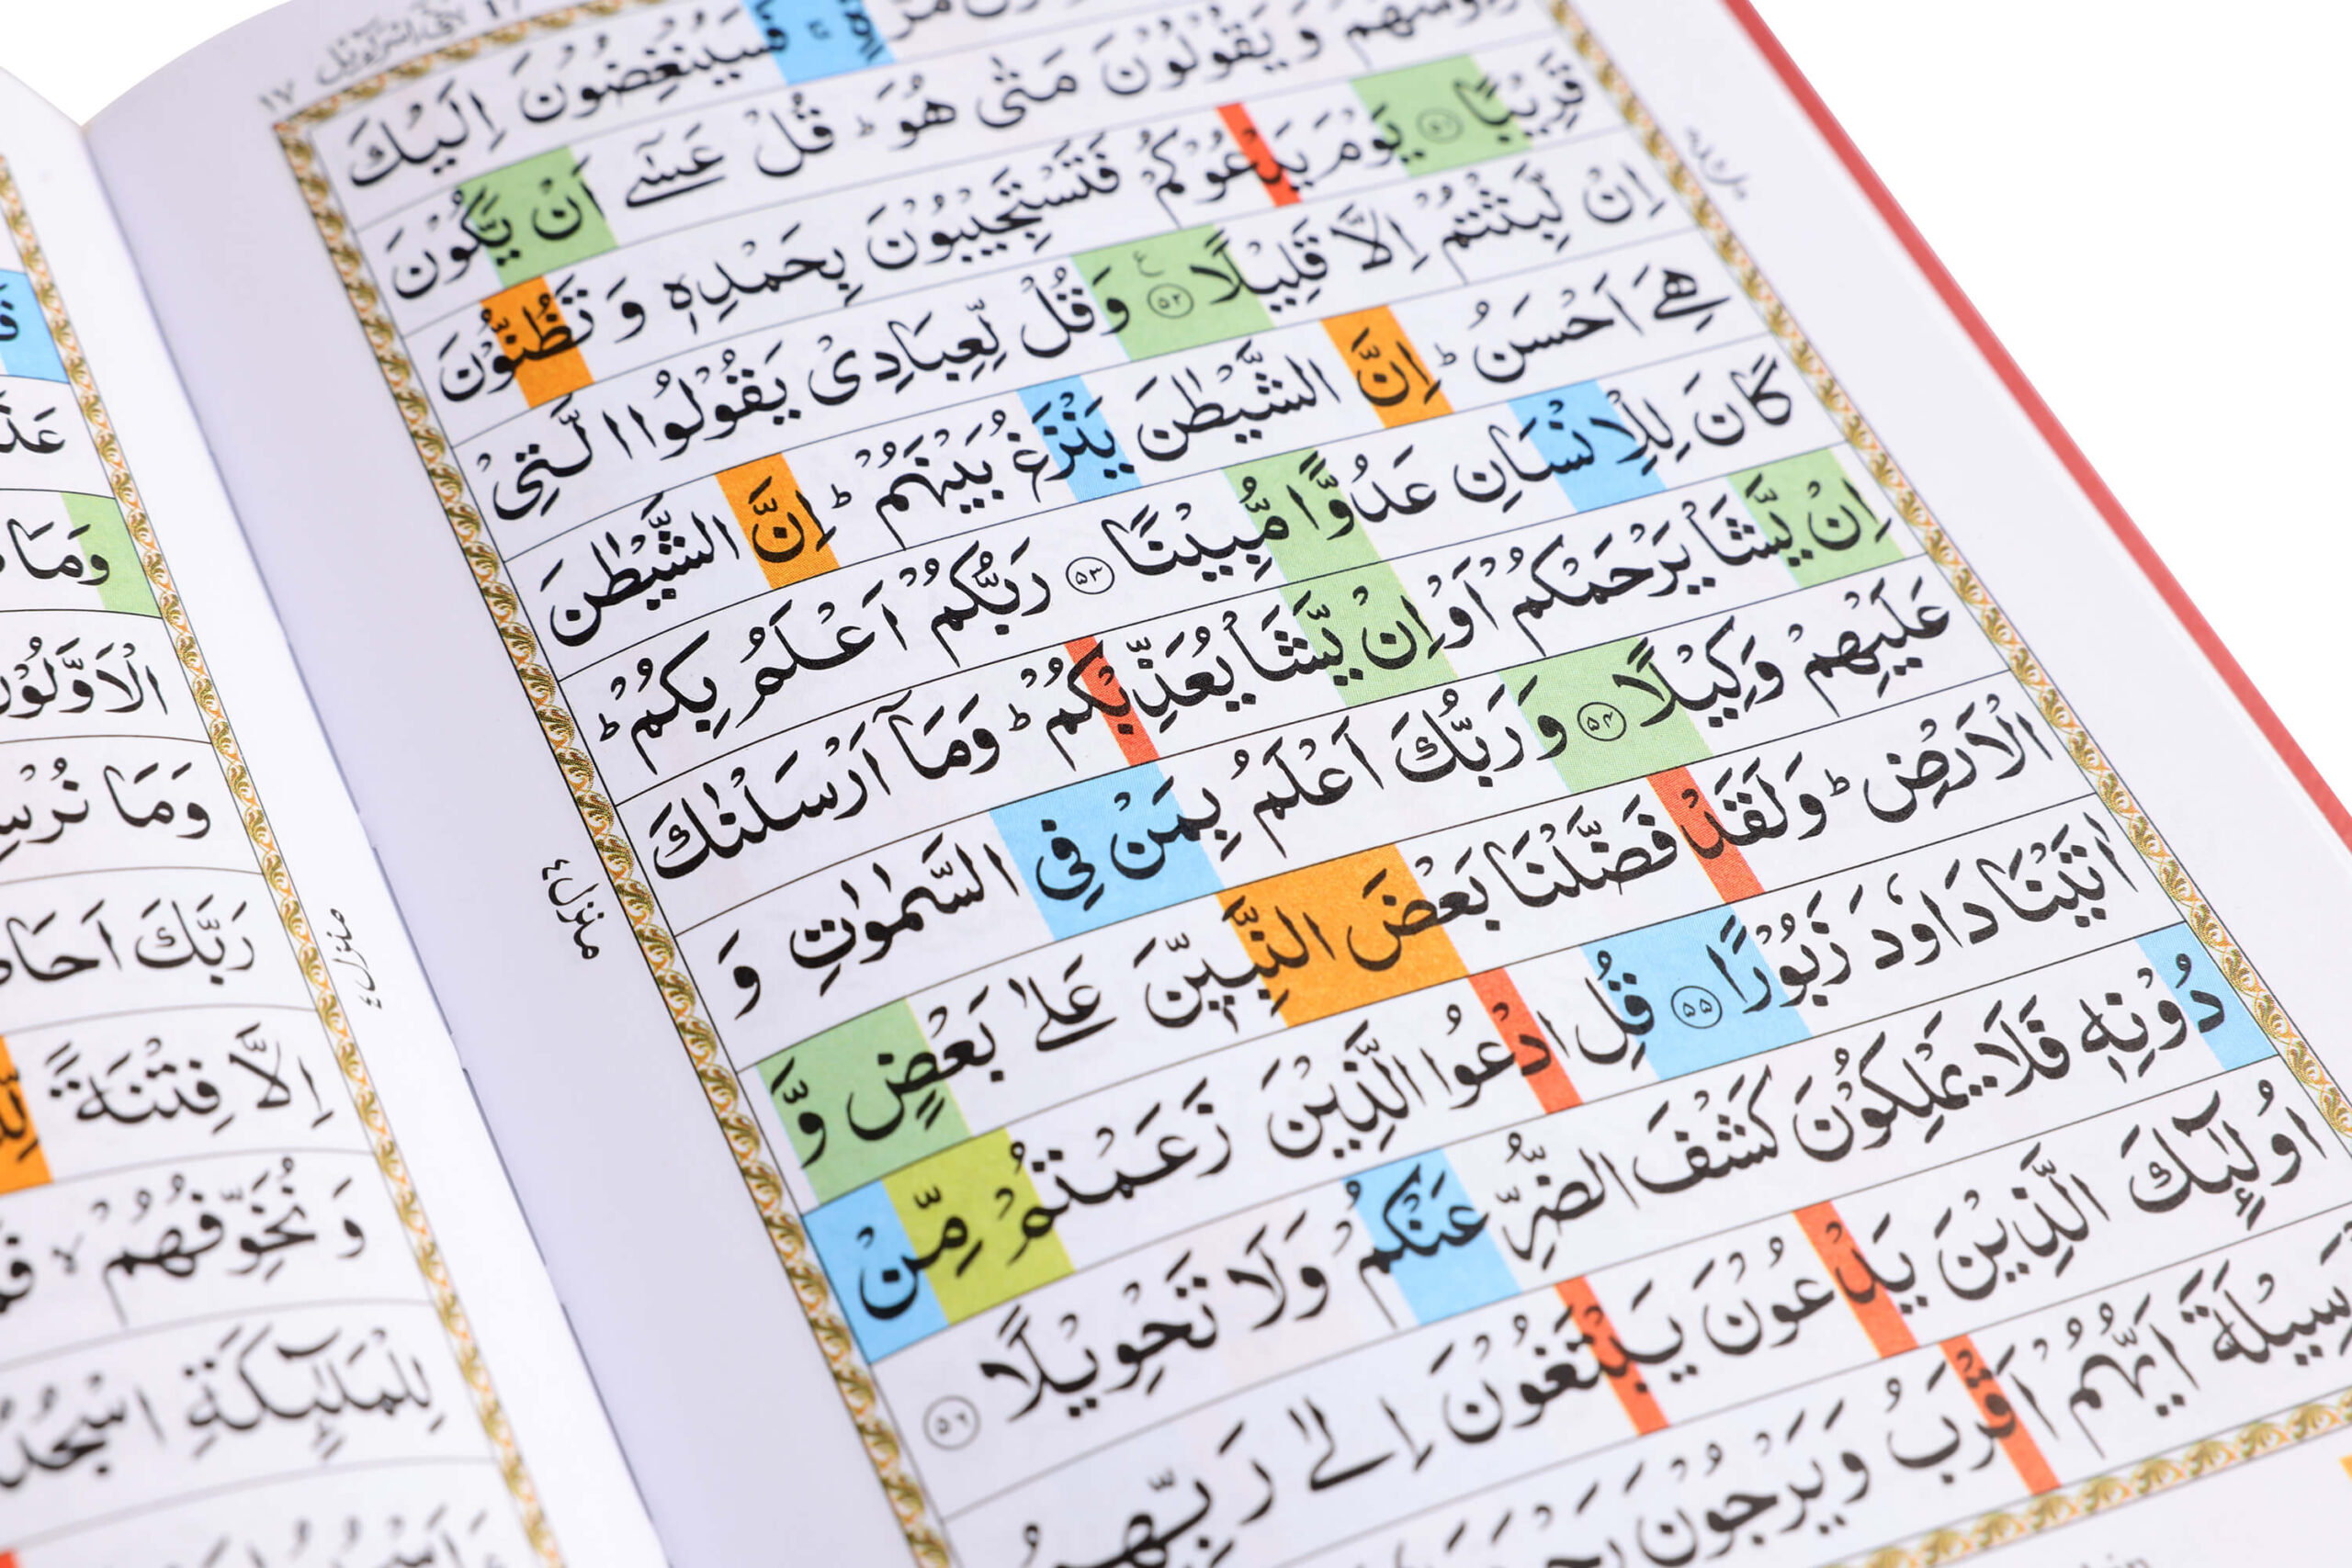 بنی اسرآءیل ١٧
فَسَيُنْغِضُوْنَ اِلَيْكَ
وَيَقُوْلُوْنَ مَتٰى هُوَ ؕ قُلْ عَسٰٓى اَنْ يَّكُوْنَ
قَرِيْبًا ۝٥١ يَوْمَ يَدْعُوْكُمْ فَتَسْتَجِيْبُوْنَ بِحَمْدِهٖ وَ تَظُنُّوْنَ
اِنْ لَّبِثْتُمْ اِلَّا قَلِيْلًا ۝٥٢ ع وَقُلْ لِّعِبَادِىْ يَقُوْلُوا الَّتِىْ
هِىَ اَحْسَنُ ؕ اِنَّ الشَّيْطٰنَ يَنْزَغُ بَيْنَهُمْ ؕ اِنَّ الشَّيْطٰنَ
كَانَ لِلْاِنْسَانِ عَدُوًّا مُّبِيْنًا ۝٥٣ رَبُّكُمْ اَعْلَمُ بِكُمْ ؕ
اِنْ يَّشَاْ يَرْحَمْكُمْ اَوْ اِنْ يَّشَاْ يُعَذِّبْكُمْ ؕ وَمَاۤ اَرْسَلْنٰكَ
عَلَيْهِمْ وَكِيْلًا ۝٥٤ وَ رَبُّكَ اَعْلَمُ بِمَنْ فِى السَّمٰوٰتِ وَ
الْاَرْضِ ؕ وَلَقَدْ فَضَّلْنَا بَعْضَ النَّبِيّٖنَ عَلٰى بَعْضٍ وَّ
اٰتَيْنَا دَاوٗدَ زَبُوْرًا ۝٥٥ قُلِ ادْعُوا الَّذِيْنَ زَعَمْتُمْ مِّنْ
دُوْنِهٖ فَلَا يَمْلِكُوْنَ كَشْفَ الضُّرِّ عَنْكُمْ وَلَا تَحْوِيْلًا ۝٥٦
اُولٰٓئِكَ الَّذِيْنَ يَدْعُوْنَ يَبْتَغُوْنَ اِلٰى رَبِّهِمُ
اَيُّهُمْ اَقْرَبُ وَيَرْجُوْنَ
منزل ٤
وَمَا
الْاَوَّلُوْنَ
وَمَا نُرْسِ
رَبَّكَ اَحَاطَ
اِلَّا فِتْنَةً
وَ نُخَوِّفُهُمْ ۙ
لِلْمَلٰٓئِكَةِ اسْجُدُ
منزل ٤